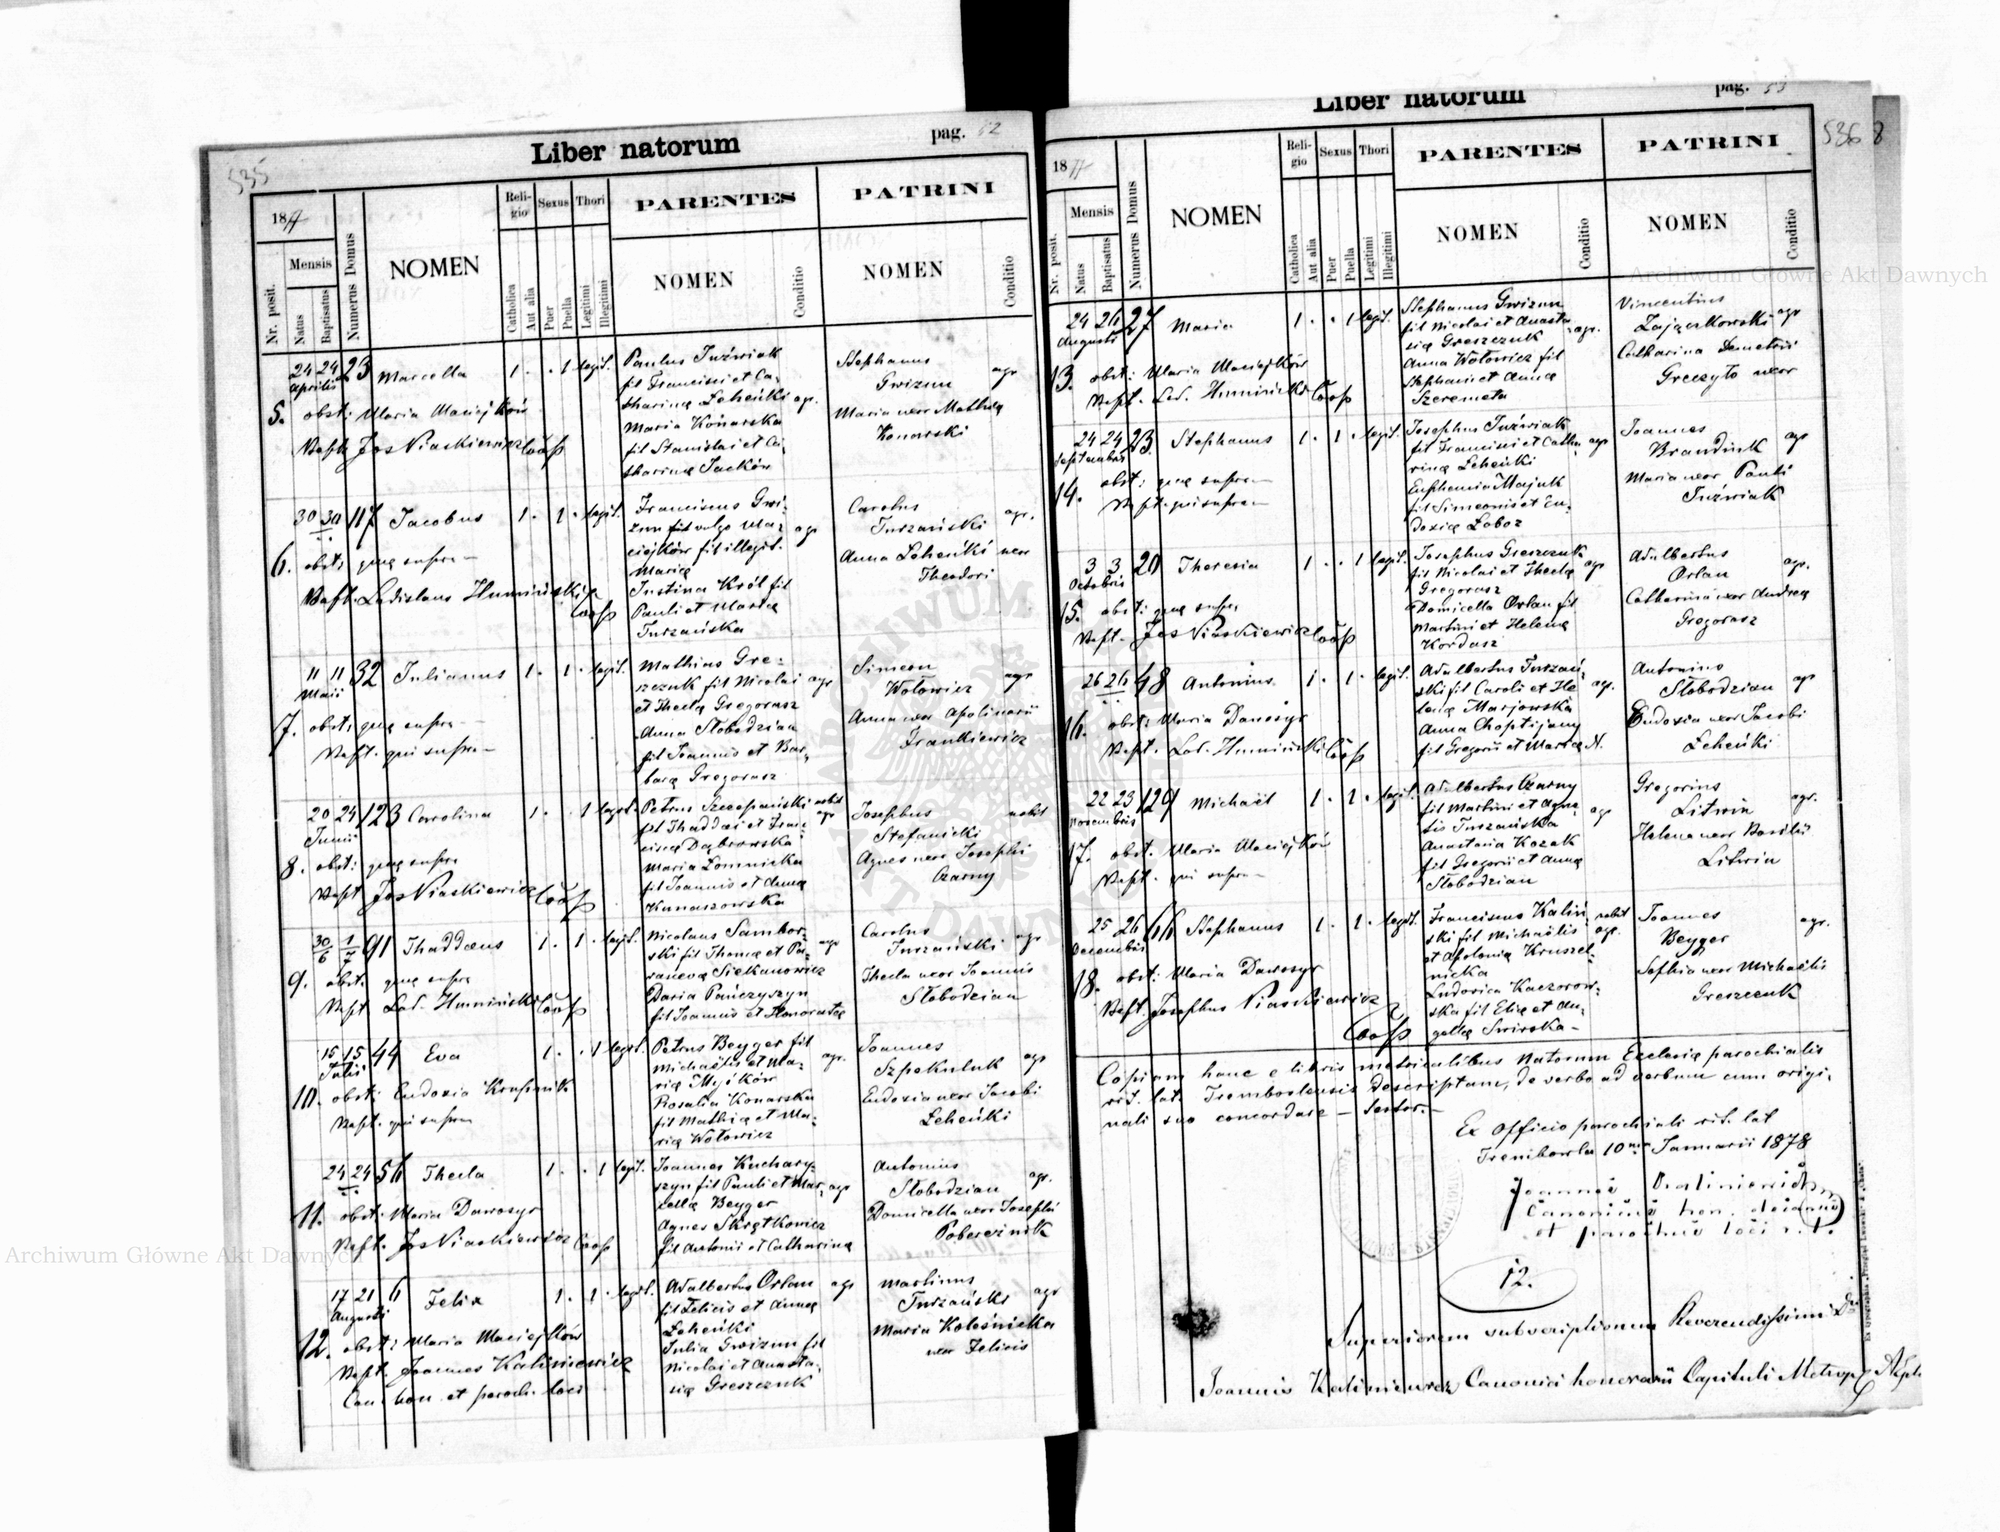 535
Liber natorum
pag. 52
1877
Mensis
Nr. posit.
Natus
Baptisatus
Numerus Domus
NOMEN
Reli-
gio
Sexus
Thori
Catholica
Aut alia
Puer
Puella
Legitimi
Illegitimi
PARENTES
NOMEN
Conditio
PATRINI
NOMEN
Conditio
24 24 23 Marcella 1 . . 1 legit.
Aprilis
5. obst: Maria Maciejków
Bapt. Jos Piaskiewicz Coop
Paulus Juźwiak
fil Francisci et Ca-
tharinae Leheńki agr.
Maria Konarska
fil Stanislai et Ca-
tharinae Jacków
Stephanus
Gwizun agr
Maria uxor Mathiae
Konarski
30 30 117 Jacobus 1 . 1 . legit.
6. obst: quae supra
Bapt. Ladislaus Humiński
Coop
Franciscus Gwi-
zun fil vulgo Ma- agr
ciejków fil illegit.
Mariae
Justina Król fil
Pauli et Mariae
Turzańska
Carolus
Turzański agr.
Anna Leheńki uxor
Theodori
11 11 32 Julianus 1 . 1 . legit.
Maii
7. obst: quae supra
Bapt. qui supra
Mathias Gre-
szczuk fil Nicolai agr
et Theclae Gregorasz
Anna Słobodzian
fil Joannis et Bar-
barae Gregorasz
Simeon
Wołowicz agr
Anna uxor Apolinarii
Frankiewicz
20 24 123 Carolina 1 . . 1 legit.
Junii
8. obst: quae supra
Bapt Jos Piaskiewicz Coop
Petrus Szczepański nobil
fil Thaddaei et Fran- agr
ciscae Dąbrowska
Maria Łomnicka
fil Joannis et Annae
Kunaszowska
Josephus nobil
Stefanicki
Agnes uxor Josephi
Czarny
30/6 1/7 91 Thaddaeus 1 . 1 . legit.
9. obst. quae supra
Bapt Lad. Humiński Coop
Nicolaus Sambor-
ski fil Thomae et Pa- agr
rascevae Siekanowicz
Daria Pańczyszyn
fil Joannis et Honoratae
Carolus
Turzański agr
Thecla uxor Joannis
Słobodzian
15 15 44 Eva 1 . . 1 legit.
Julii
10. obst: Eudoxia Krupnik
Bapt. qui supra
Petrus Beyger fil
Michaëlis et Ma- agr.
riae Myśków
Rosalia Konarska
fil Mathiae et Ma-
riae Wołowicz
Joannes
Szpakuluk agr
Eudoxia uxor Jacobi
Leheńki
24 24 56 Thecla 1 . . 1 legit.
11. obst: Maria Dawosyr
Bapt. Jos Piaskiewicz Coop
Joannes Kuchary-
szyn fil Pauli et Mar- agr
cellae Beyger
Agnes Skrętkowicz
fil Antonii et Catharinae
Antonius
Słobodzian agr.
Domicella uxor Josephi
Pobereżnik
17 21 6 Felix 1 . 1 . legit.
Augusti
12. obst: Maria Maciejków
Bapt. Joannes Kaliniewicz
Can hon. et paroch. loci
Adalbertus Orlan agr
fil Felicis et Annae
Leheńki
Julia Gwizun fil
Nicolai et Anasta-
siae Greszczuk
Martinus
Turzański agr
Maria Koleśnicka
uxor Felicis
Liber natorum
pag. 53
536
8
1877
Mensis
Nr. posit.
Natus
Baptisatus
Numerus Domus
NOMEN
Reli-
gio
Sexus
Thori
Catholica
Aut alia
Puer
Puella
Legitimi
Illegitimi
PARENTES
NOMEN
Conditio
PATRINI
NOMEN
Conditio
24 26 27 Maria 1 . . 1 legit.
Augusti
13. obst: Maria Maciejków
Bapt. Lad. Humiński Coop
Stephanus Gwizun
fil Nicolai et Anasta- agr.
siae Greszczuk
Anna Wołowicz fil
Stephani et Annae
Szeremeta
Vincentius
Zajączkowski agr
Catharina Demetrii
Greczyło uxor
24 24 23 Stephanus 1 . 1 . legit.
Septembris
14. obst: quae supra
Bapt. qui supra
Josephus Juźwiak
fil Francisci et Catha- agr
rinae Leheńki
Euphemia Majuk
fil Simeonis et Eu-
doxiae Łoboz
Joannes
Brandiuk agr
Maria uxor Pauli
Juźwiak
3 3 20 Theresia 1 . . 1 legit.
Octobris
15. obst: quae supra
Bapt. Jos Piaskiewicz Coop
Josephus Greszczuk
fil Nicolai et Theclae agr
Gregorasz
Domicella Orlan fil
Martini et Helenae
Kordasz
Adalbertus
Orlan agr.
Catharina uxor Andreae
Gregorasz
26 26 48 Antonius 1 . 1 . legit.
16. obst: Maria Dawosyr
Bapt. Lad. Humiński Coop
Adalbertus Turzań-
ski fil Caroli et He- agr.
lenae Marjowska
Anna Choptijany
fil Gregorii et Mariae N.
Antonius
Słobodzian agr
Eudoxia uxor Jacobi
Leheńki
22 23 129 Michaël 1 . 1 . legit.
Novembris
17. obst. Maria Maciejków
Bapt. qui supra
Adalbertus Czarny
fil Martini et Agne- agr
tis Turzańska
Anastasia Kozak
fil Gregorii et Annae
Słobodzian
Gregorius
Litwin agr.
Helena uxor Basilii
Litwin
25 26 66 Stephanus 1 . 1 . legit.
Decembris
18. obst: Maria Dawosyr
Bapt. Josephus Piaskiewicz
Coop
Franciscus Kaliń- nobil
ski fil Michaëlis agr.
et Apolonia Kruszel-
nicka
Ludovica Kaczorow-
ska fil Eliae et An-
gellae Swirska
Joannes
Beyger agr.
Sophia uxor Michaëlis
Greszczuk
Copiam hanc e libris metricalibus Natorum Ecclesiae parochialis
rit. lat. Trembowlensis descriptam, de verbo ad verbum cum origi-
nali suo concordare – testor.
Ex Officio parochiali rit. lat
Trembowla 10ma Januarii 1878
Joannes Kaliniewicz
Canonicus hon. decanus
et parochus loci r. l.
12.
Superiorem subscriptionem Reverendissimi Dni
Joannis Kaliniewicz Canonici honorarii Capituli Metrop
Archiwum Główne Akt Dawnych
Archiwum Główne Akt Dawnych
ARCHIWUM
AKT DAWNYCH